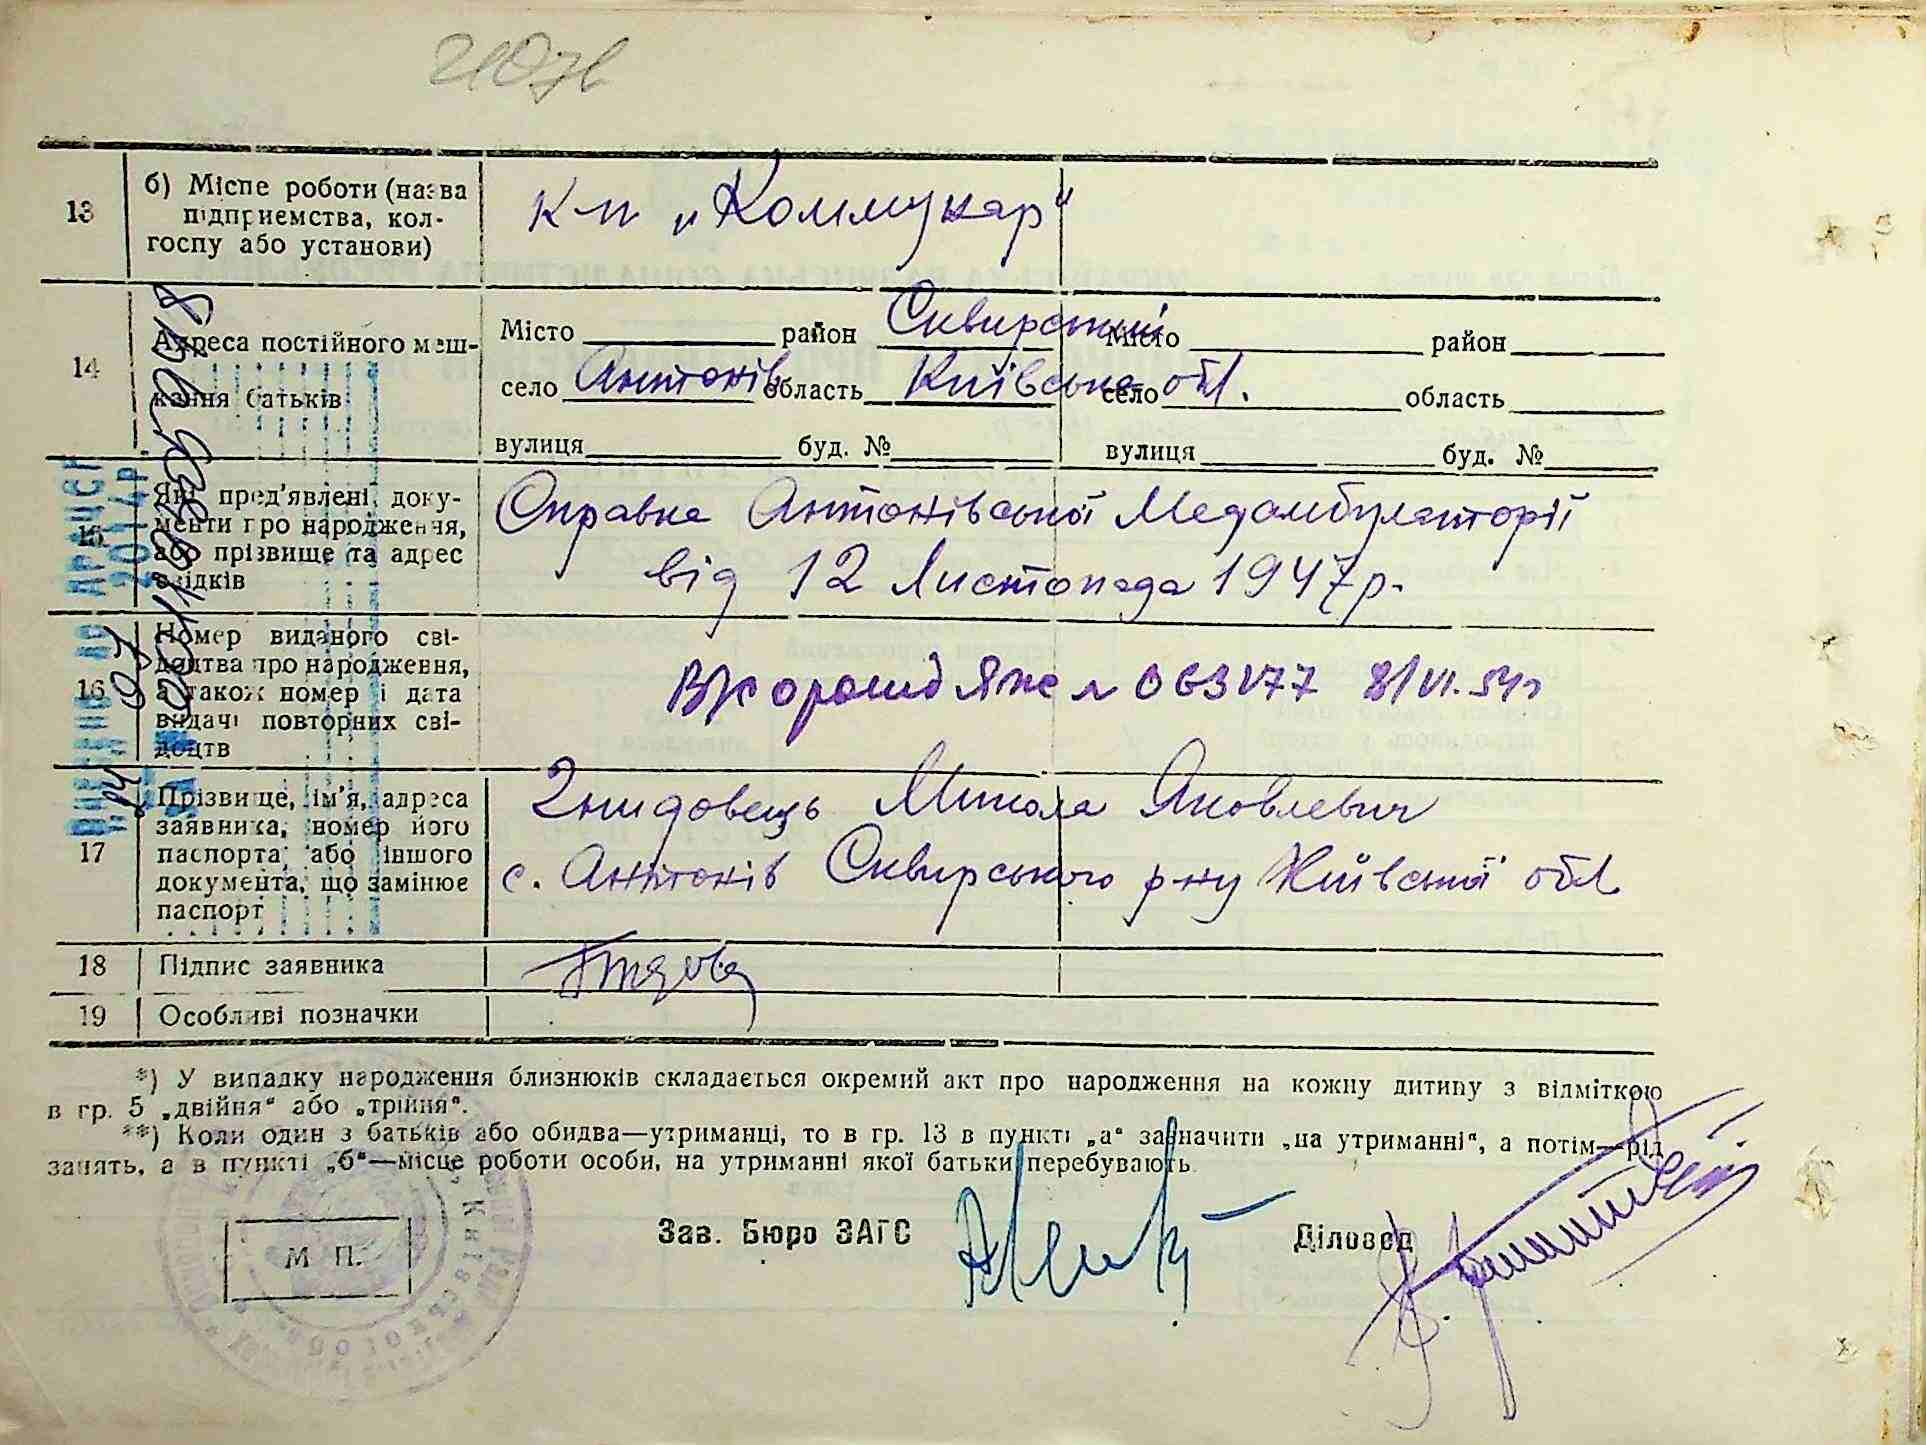 13
б) Місце роботи (назва
підприємства, кол-
госпу або установи)
к-п „Коммунар"
14
Адреса постійного меш-
кання батьків
Місто район Сквирський
село Антонів область Київська обл.
вулиця буд. №
Місто район
село область
вулиця буд. №
15
Які пред'явлені доку-
менти про народження,
або прізвище та адрес
свідків
Справка Антонівської Медамбулаторії
від 12 Листопада 1947 р.
16
Номер виданого сві-
доцтва про народження,
а також номер і дата
видачі повторних сві-
доцтв
№ 063177 8/VI. 54 р
17
Прізвище, ім'я, адреса
заявника, номер його
паспорта або іншого
документа, що замінює
паспорт
Микола Яковлевич
с. Антонів Сквирського р-ну Київської обл
18
Підпис заявника
19
Особливі позначки
*) У випадку народження близнюків складається окремий акт про народження на кожну дитину з відміткою
в гр. 5 „двійня" або „трійня".
**) Коли один з батьків або обидва—утриманці, то в гр. 13 в пункті „а" зазначити „на утриманні", а потім—рід
занять, а в пункті „б"—місце роботи особи, на утриманні якої батьки перебувають.
М П.
Зав. Бюро ЗАГС
Діловод